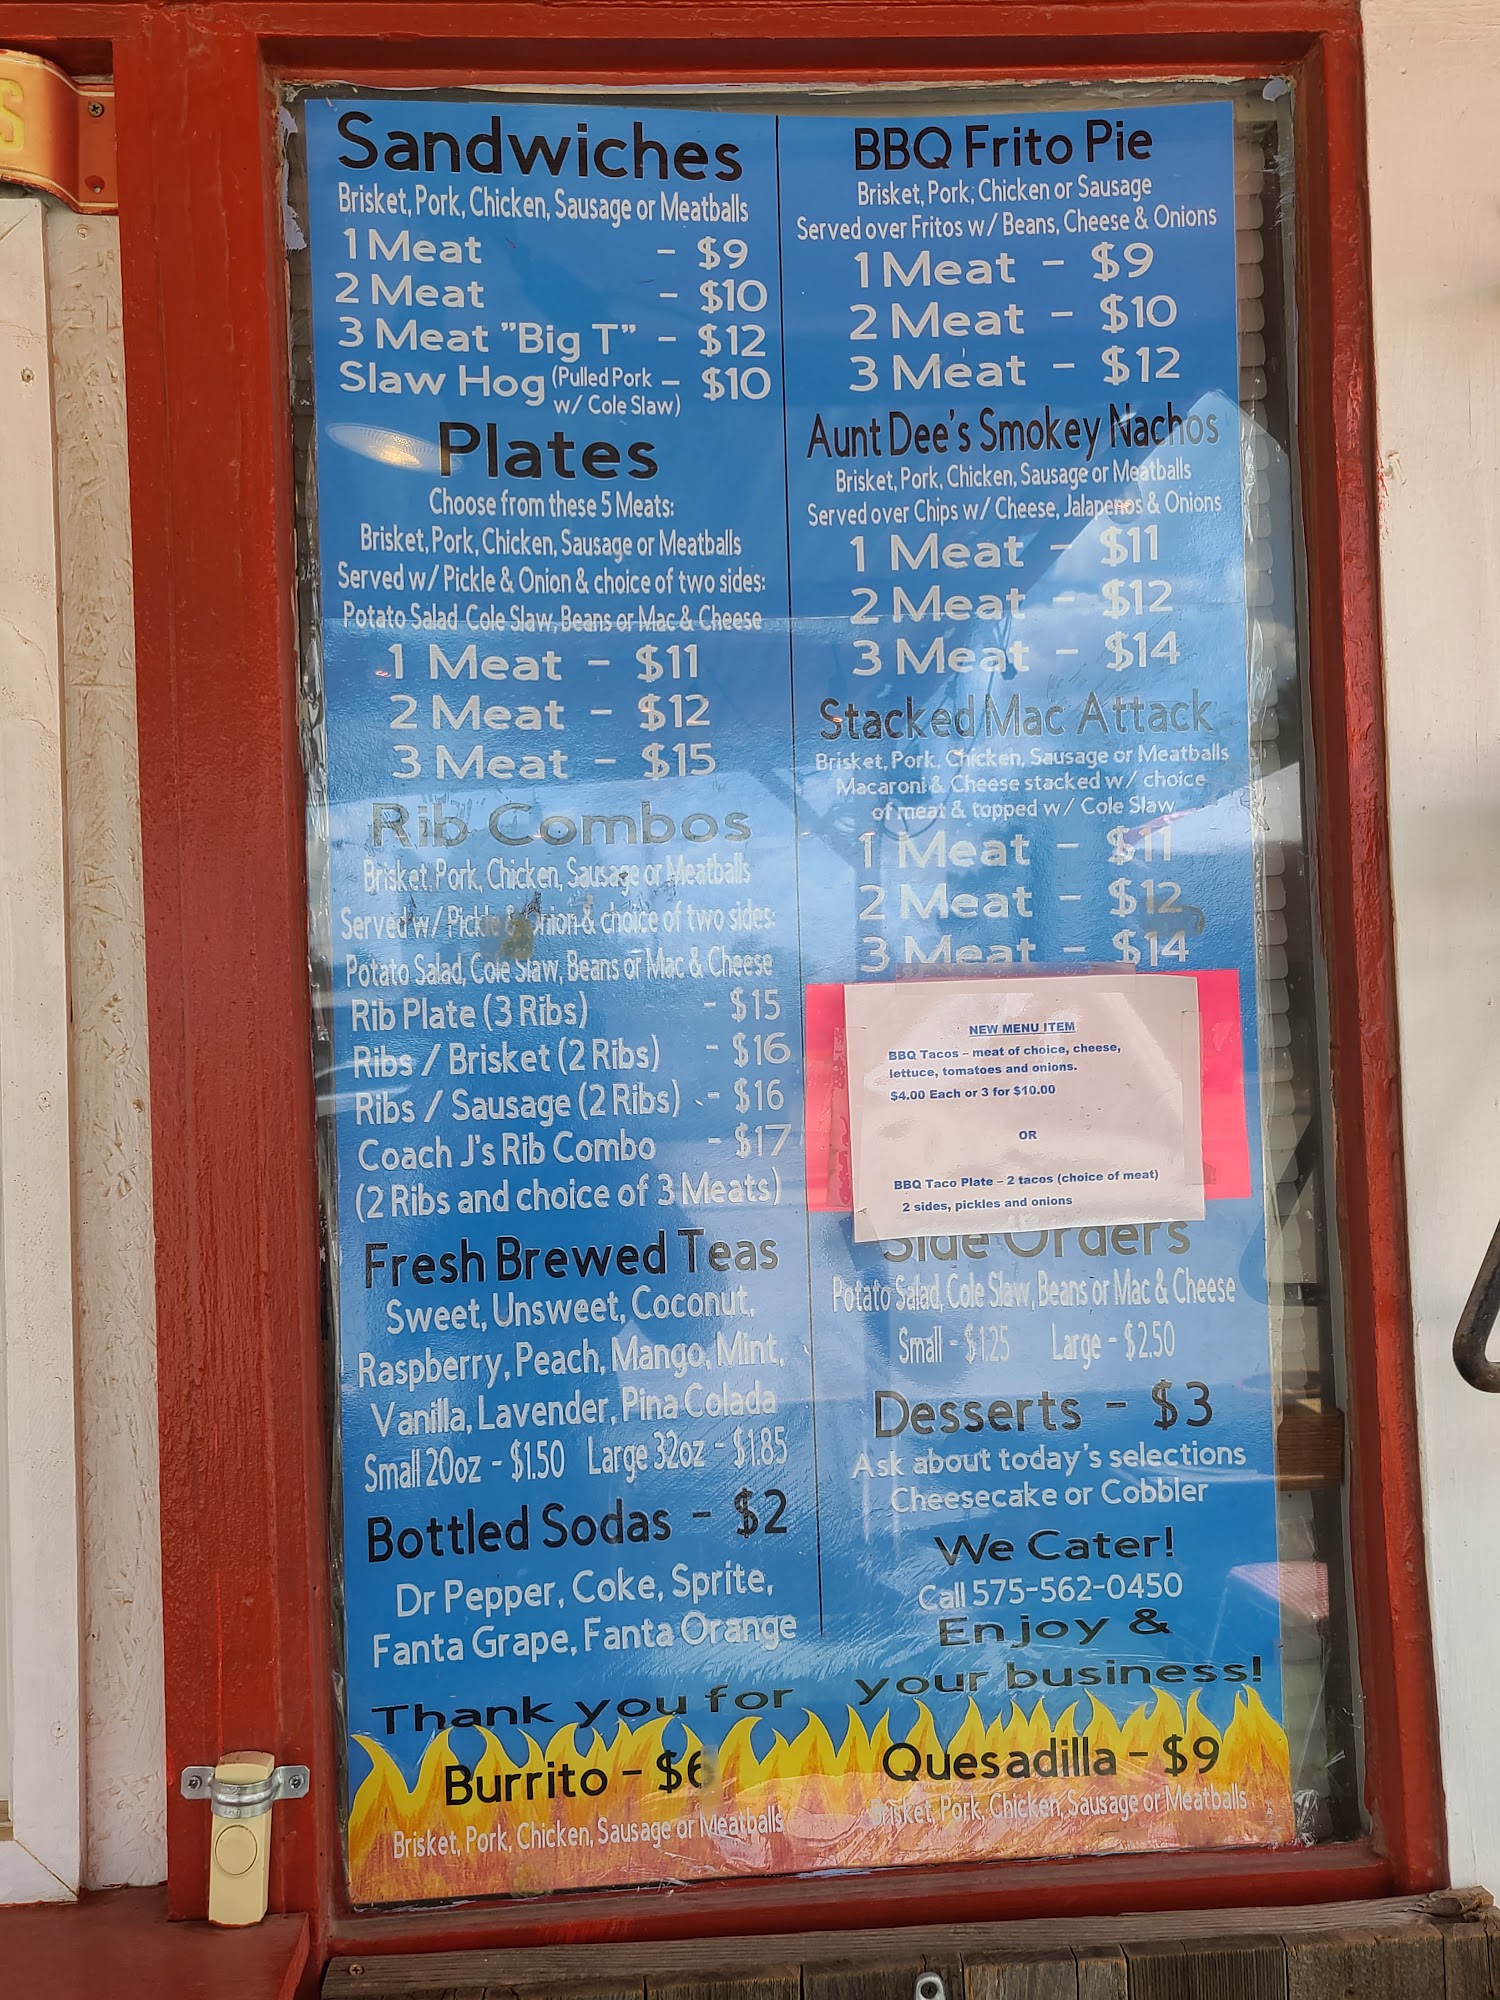 S
Sandwiches
Brisket, Pork, Chicken, Sausage or Meatballs
1 Meat - $9
2 Meat - $10
3 Meat "Big T" - $12
Slaw Hog (Pulled Pork - $10
w/ Cole Slaw)
Plates
Choose from these 5 Meats:
Brisket, Pork, Chicken, Sausage or Meatballs
Served w/ Pickle & Onion & choice of two sides:
Potato Salad Cole Slaw, Beans or Mac & Cheese
1 Meat - $11
2 Meat - $12
3 Meat - $15
Rib Combos
Brisket, Pork, Chicken, Sausage or Meatballs
Served w/ Pickle & Onion & choice of two sides:
Potato Salad, Cole Slaw, Beans or Mac & Cheese
Rib Plate (3 Ribs) - $15
Ribs / Brisket (2 Ribs) - $16
Ribs / Sausage (2 Ribs) - $16
Coach J's Rib Combo - $17
(2 Ribs and choice of 3 Meats)
Fresh Brewed Teas
Sweet, Unsweet, Coconut,
Raspberry, Peach, Mango, Mint,
Vanilla, Lavender, Pina Colada
Small 20oz - $1.50 Large 32oz - $1.85
Bottled Sodas - $2
Dr Pepper, Coke, Sprite,
Fanta Grape, Fanta Orange
BBQ Frito Pie
Brisket, Pork, Chicken or Sausage
Served over Fritos w/ Beans, Cheese & Onions
1 Meat - $9
2 Meat - $10
3 Meat - $12
Aunt Dee's Smokey Nachos
Brisket, Pork, Chicken, Sausage or Meatballs
Served over Chips w/ Cheese, Jalapenos & Onions
1 Meat - $11
2 Meat - $12
3 Meat - $14
Stacked Mac Attack
Brisket, Pork, Chicken, Sausage or Meatballs
Macaroni & Cheese stacked w/ choice
of meat & topped w/ Cole Slaw
1 Meat - $11
2 Meat - $12
3 Meat - $14
NEW MENU ITEM
BBQ Tacos – meat of choice, cheese,
lettuce, tomatoes and onions.
$4.00 Each or 3 for $10.00
OR
BBQ Taco Plate – 2 tacos (choice of meat)
2 sides, pickles and onions
Side Orders
Potato Salad, Cole Slaw, Beans or Mac & Cheese
Small - $1.25 Large - $2.50
Desserts - $3
Ask about today's selections
Cheesecake or Cobbler
We Cater!
Call 575-562-0450
Enjoy &
Thank you for your business!
Burrito - $6
Brisket, Pork, Chicken, Sausage or Meatballs
Quesadilla - $9
Brisket, Pork, Chicken, Sausage or Meatballs